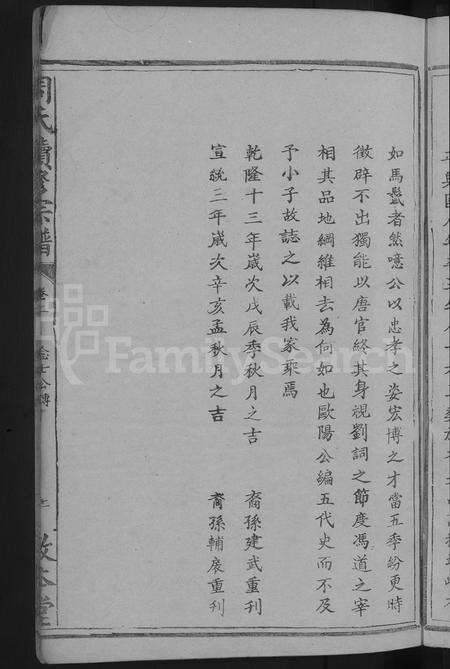 如馬鬣者然噫公以忠孝之姿宏博之才當五季紛更時
徵辟不出獨能以唐官終其身視劉詞之節度馮道之宰
相其品地綱維相去為何如也歐陽公編五代史而不及
予小子故誌之以載我家乘焉
乾隆十三年歲次戊辰季秋月之吉 裔孫建武重刊
宣統三年歲次辛亥孟秋月之吉 裔孫輔廷重刊
周氏續修宗譜
卷
公傳
敦本堂
FamilySearch